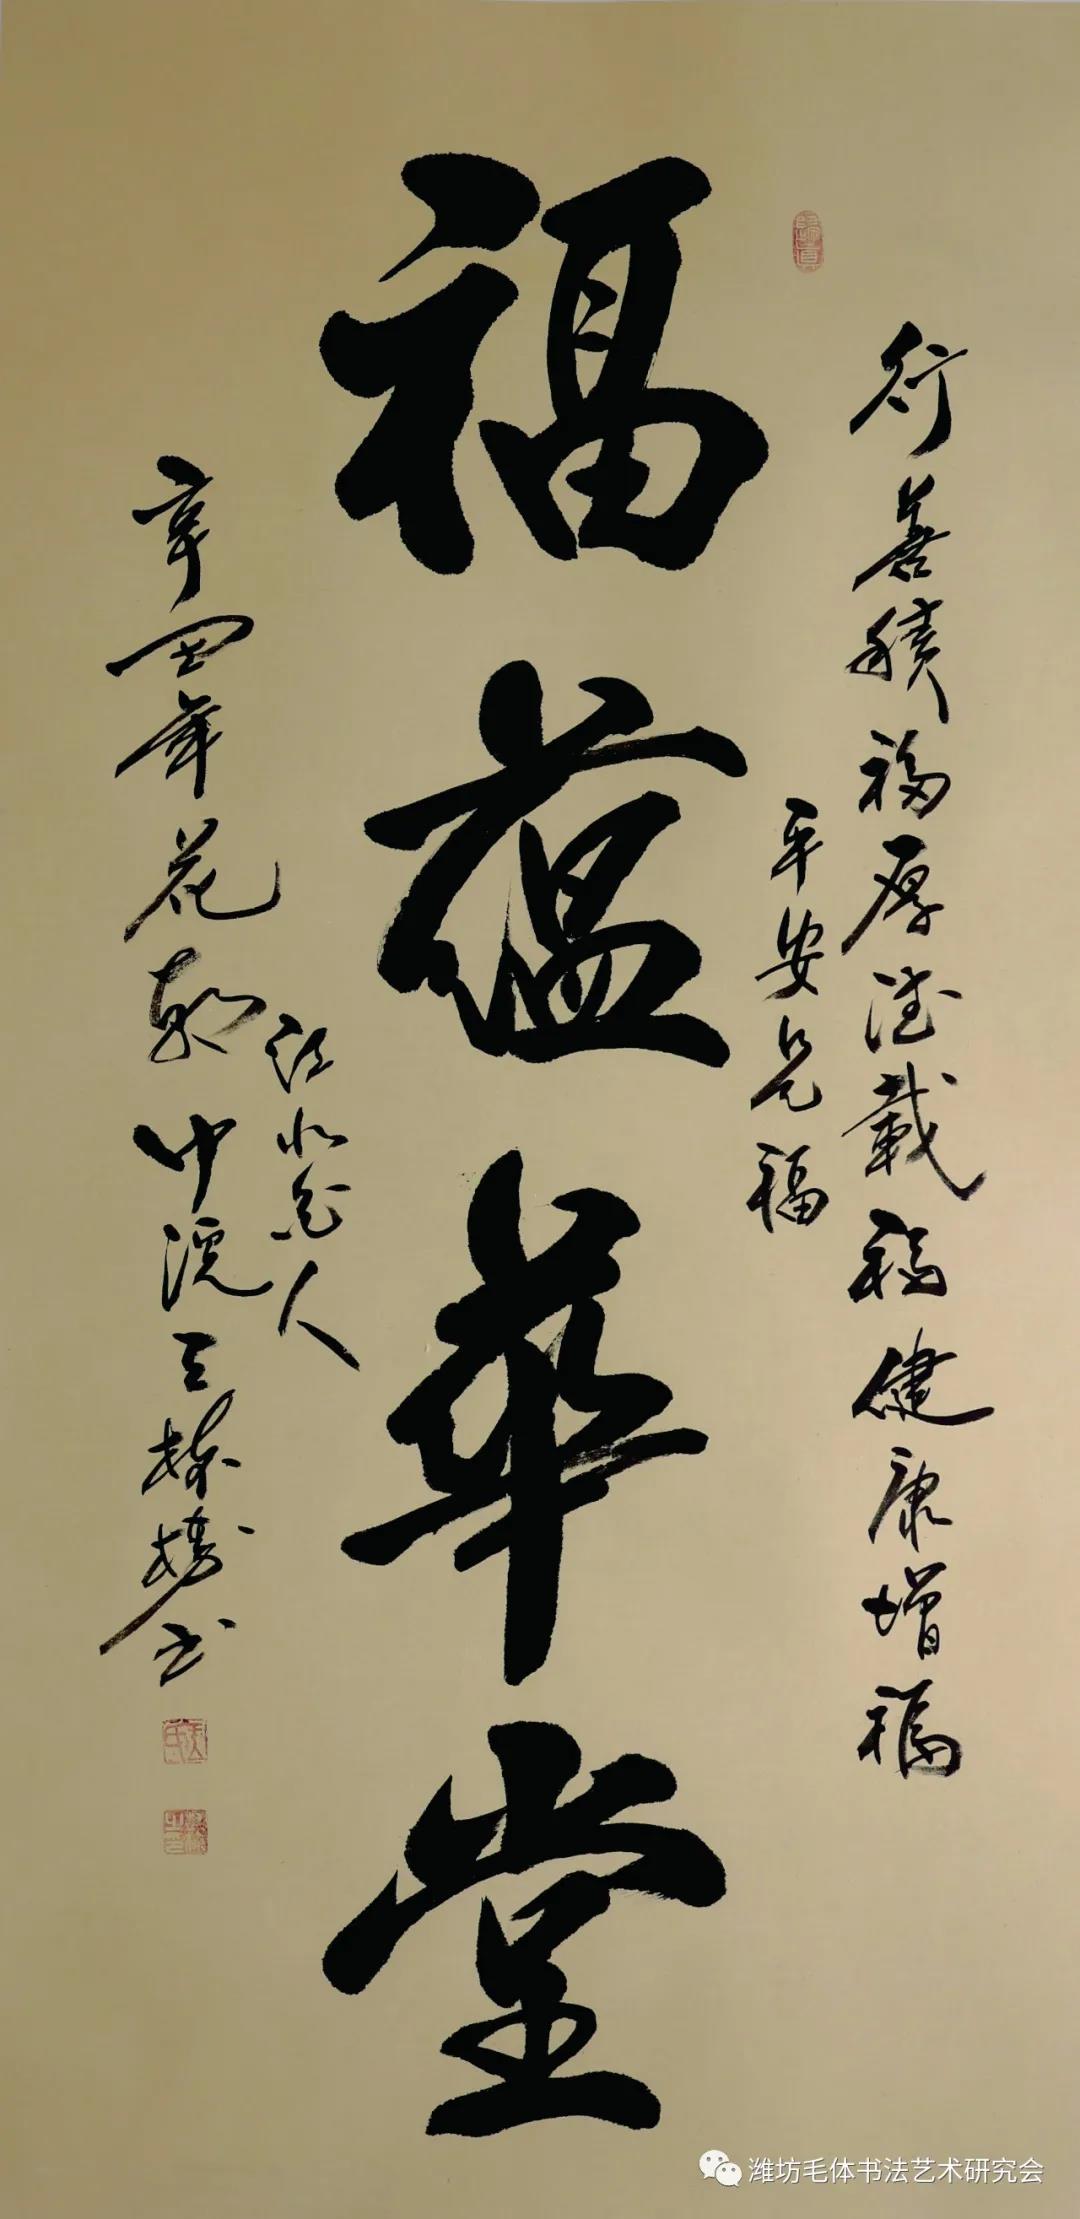 行善積福厚德載福健康增福
平安是福
福蘊華堂
江北人
辛丑年花朝中浣王書
潍坊毛体书法艺术研究会